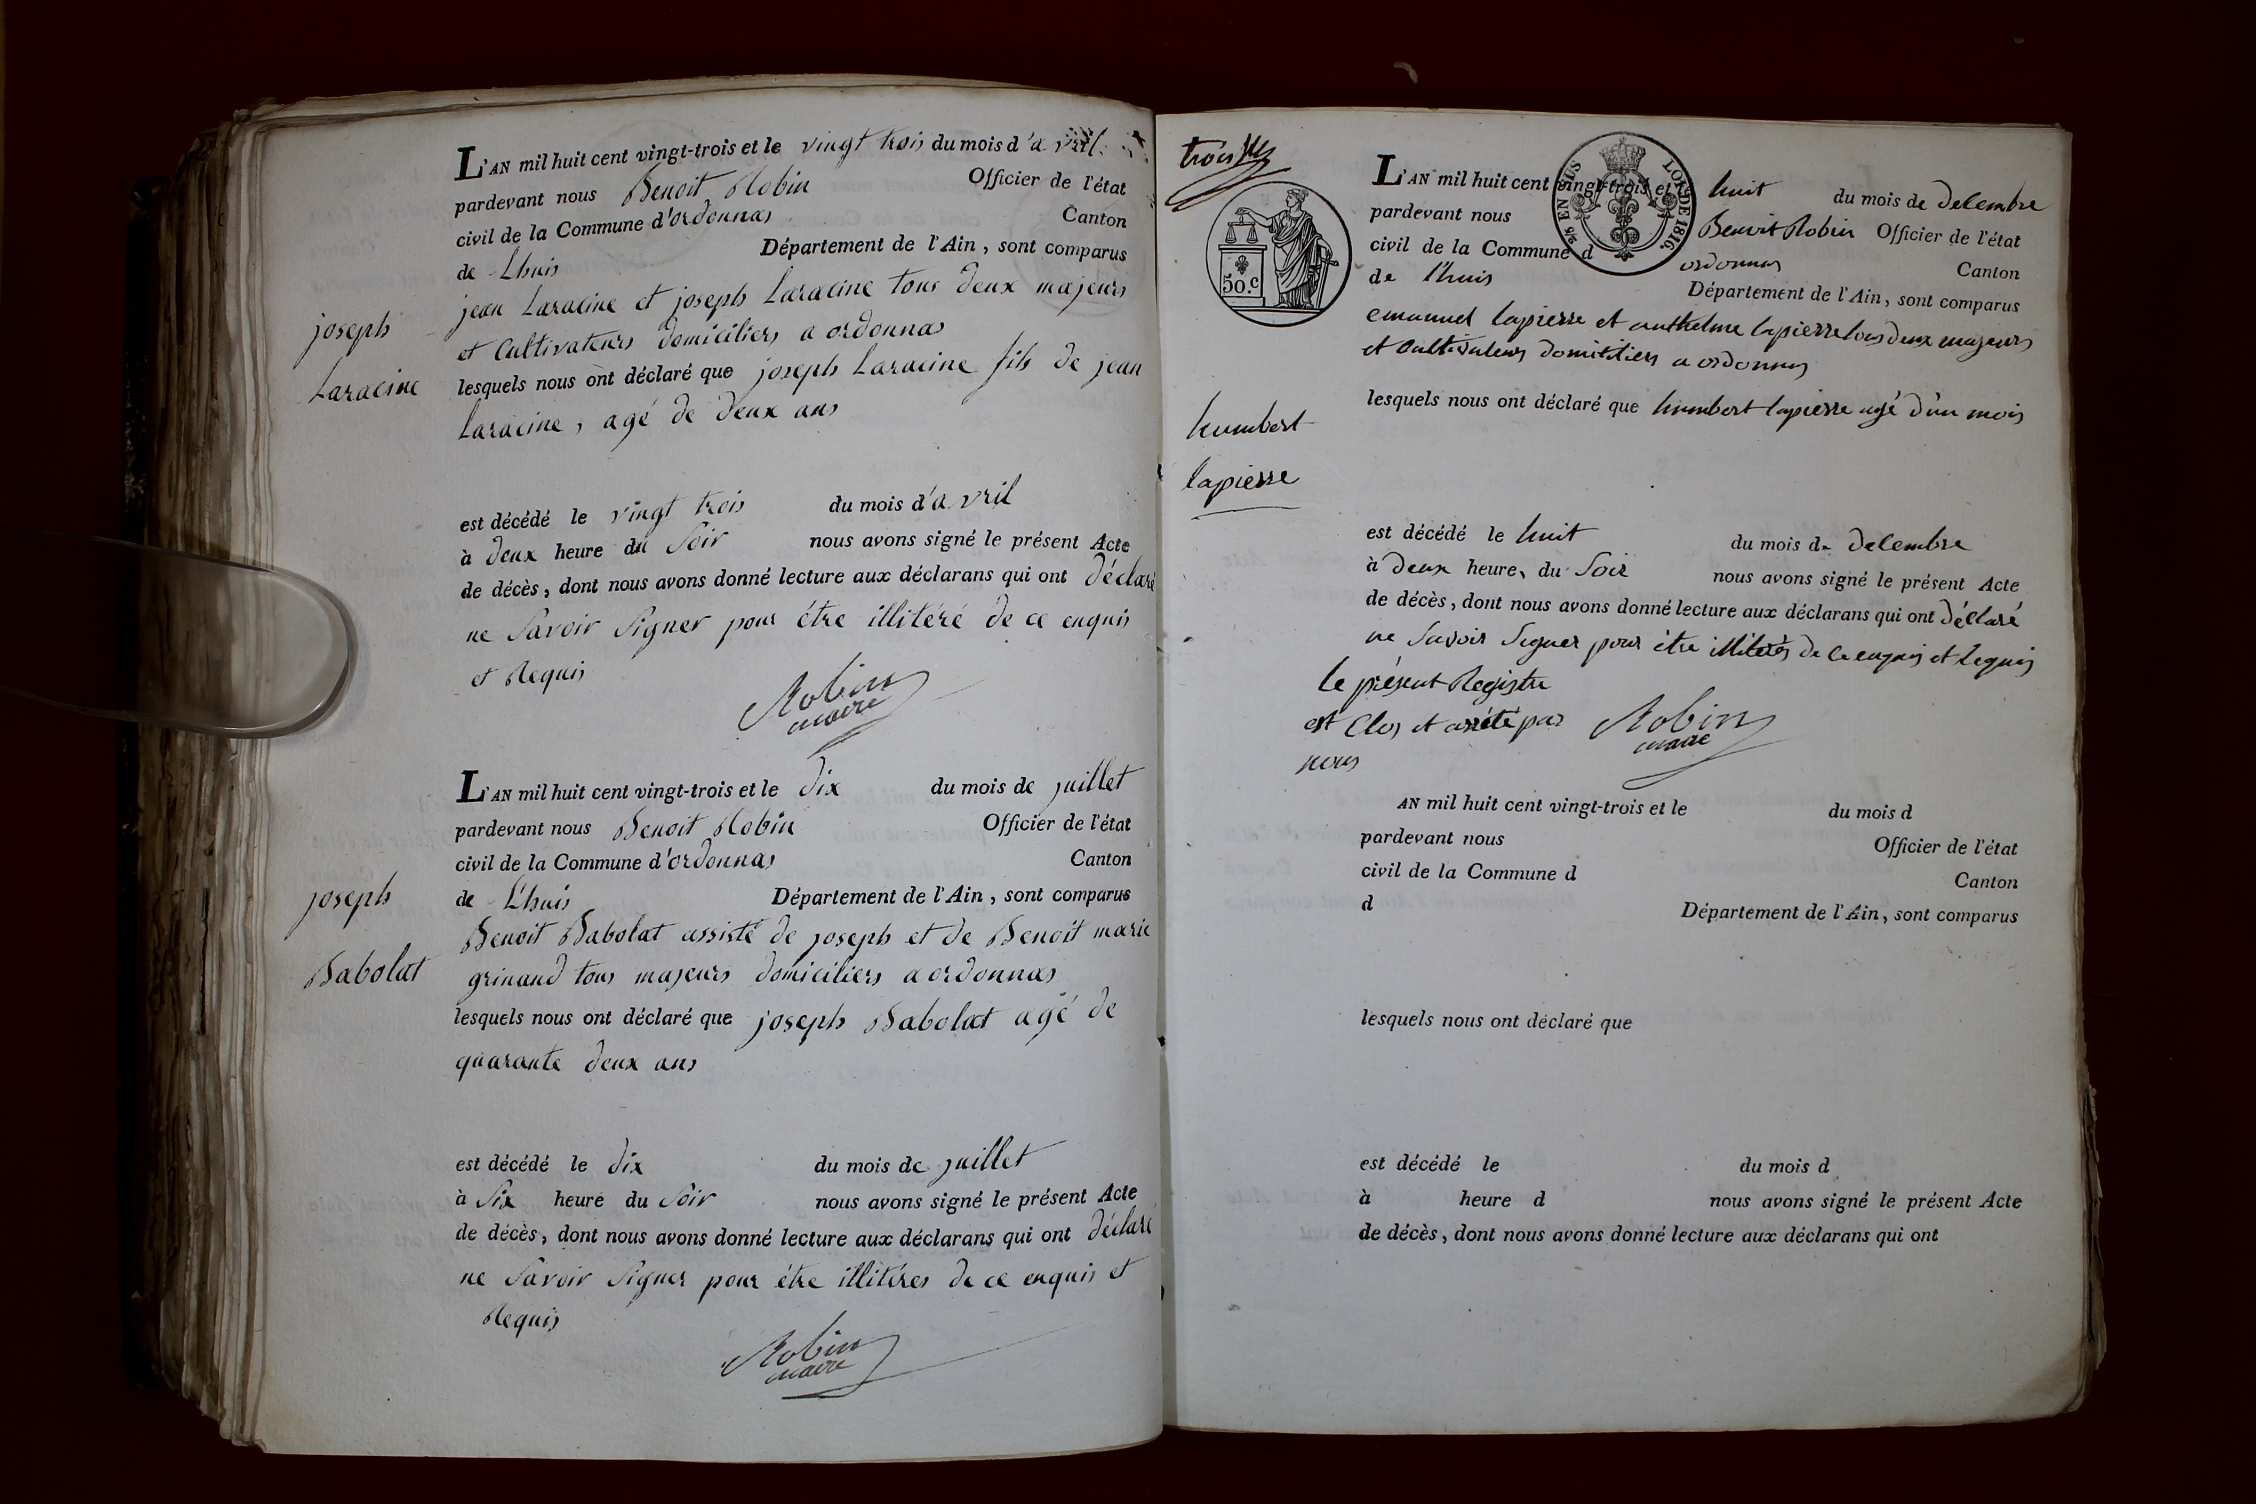 L'AN mil huit cent vingt-trois et le vingt trois du mois d'avril
pardevant nous Benoit Robin Officier de l'état
civil de la Commune d'ordonnas Canton
de Lhuis Département de l'Ain, sont comparus
jean Laracine et joseph Laracine tous deux majeurs
et Cultivateurs domiciliers a ordonnas
joseph
Laracine
lesquels nous ont déclaré que joseph Laracine fils de jean
Laracine, agé de deux ans
est décédé le vingt trois du mois d'avril
à deux heure du Soir nous avons signé le présent Acte
de décès, dont nous avons donné lecture aux déclarans qui ont déclaré
ne Savoir Signer pour étre illitéré de ce enquis
et Requis
Robin
maire
L'AN mil huit cent vingt-trois et le dix du mois de juillet
pardevant nous Benoit Robin Officier de l'état
civil de la Commune d'ordonnas Canton
de Lhuis Département de l'Ain, sont comparus
joseph
Babolat
Benoit Babolat assisté de joseph et de Benoit marie
grinand tous majeurs domiciliers a ordonnas
lesquels nous ont déclaré que joseph Babolat agé de
quarante deux ans
est décédé le dix du mois de juillet
à Six heure du Soir nous avons signé le présent Acte
de décès, dont nous avons donné lecture aux déclarans qui ont déclaré
ne Savoir Signer pour étre illitéres de ce enquis et
Requis
Robin
maire
trois
50.c
EN SUS LOI DE 1816.
L'AN mil huit cent vingt-trois et le huit du mois de decembre
pardevant nous Benoit Robin Officier de l'état
civil de la Commune d ordonnas Canton
de l'huis Département de l'Ain, sont comparus
emanuel lapierre et anthelme lapierre tous deux majeurs
et Cultivateurs domiciliers a ordonnas
humbert
lapierre
lesquels nous ont déclaré que humbert lapierre agé d'un mois
est décédé le huit du mois de decembre
à deux heures du Soir nous avons signé le présent Acte
de décès, dont nous avons donné lecture aux déclarans qui ont déclaré
ne Savoir Signer pour étre illiterés de ce enquis et Requis
le présent Registre
est Clos et arrété par
nous
Robin
maire
AN mil huit cent vingt-trois et le du mois d
pardevant nous Officier de l'état
civil de la Commune d Canton
d Département de l'Ain, sont comparus
lesquels nous ont déclaré que
est décédé le du mois d
à heure d nous avons signé le présent Acte
de décès, dont nous avons donné lecture aux déclarans qui ont